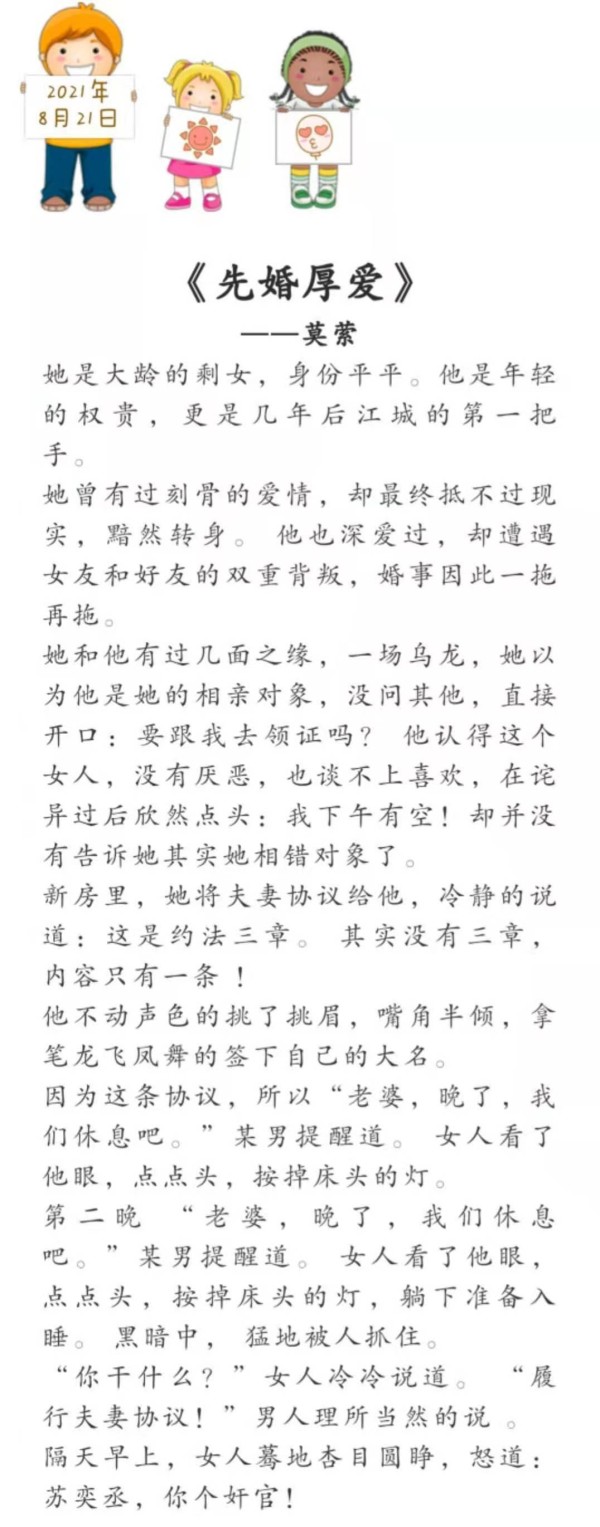 2021年
8月21日
《先婚厚爱》
——莫萦
她是大龄的剩女，身份平平。他是年轻
的权贵，更是几年后江城的第一把
手。
她曾有过刻骨的爱情，却最终抵不过现
实，黯然转身。 他也深爱过，却遭遇
女友和好友的双重背叛，婚事因此一拖
再拖。
她和他有过几面之缘，一场乌龙，她以
为他是她的相亲对象，没问其他，直接
开口：要跟我去领证吗？ 他认得这个
女人，没有厌恶，也谈不上喜欢，在诧
异过后欣然点头：我下午有空！却并没
有告诉她其实她相错对象了。
新房里，她将夫妻协议给他，冷静的说
道：这是约法三章。 其实没有三章，
内容只有一条 ！
他不动声色的挑了挑眉，嘴角半倾，拿
笔龙飞凤舞的签下自己的大名。
因为这条协议，所以“老婆，晚了，我
们休息吧。”某男提醒道。 女人看了
他眼，点点头，按掉床头的灯。
第二晚 “老婆，晚了，我们休息
吧。”某男提醒道。 女人看了他眼，
点点头，按掉床头的灯，躺下准备入
睡。 黑暗中， 猛地被人抓住。
“你干什么？”女人冷冷说道。 “履
行夫妻协议！”男人理所当然的说 。
隔天早上，女人蓦地杏目圆睁，怒道：
苏奕丞，你个奸官！